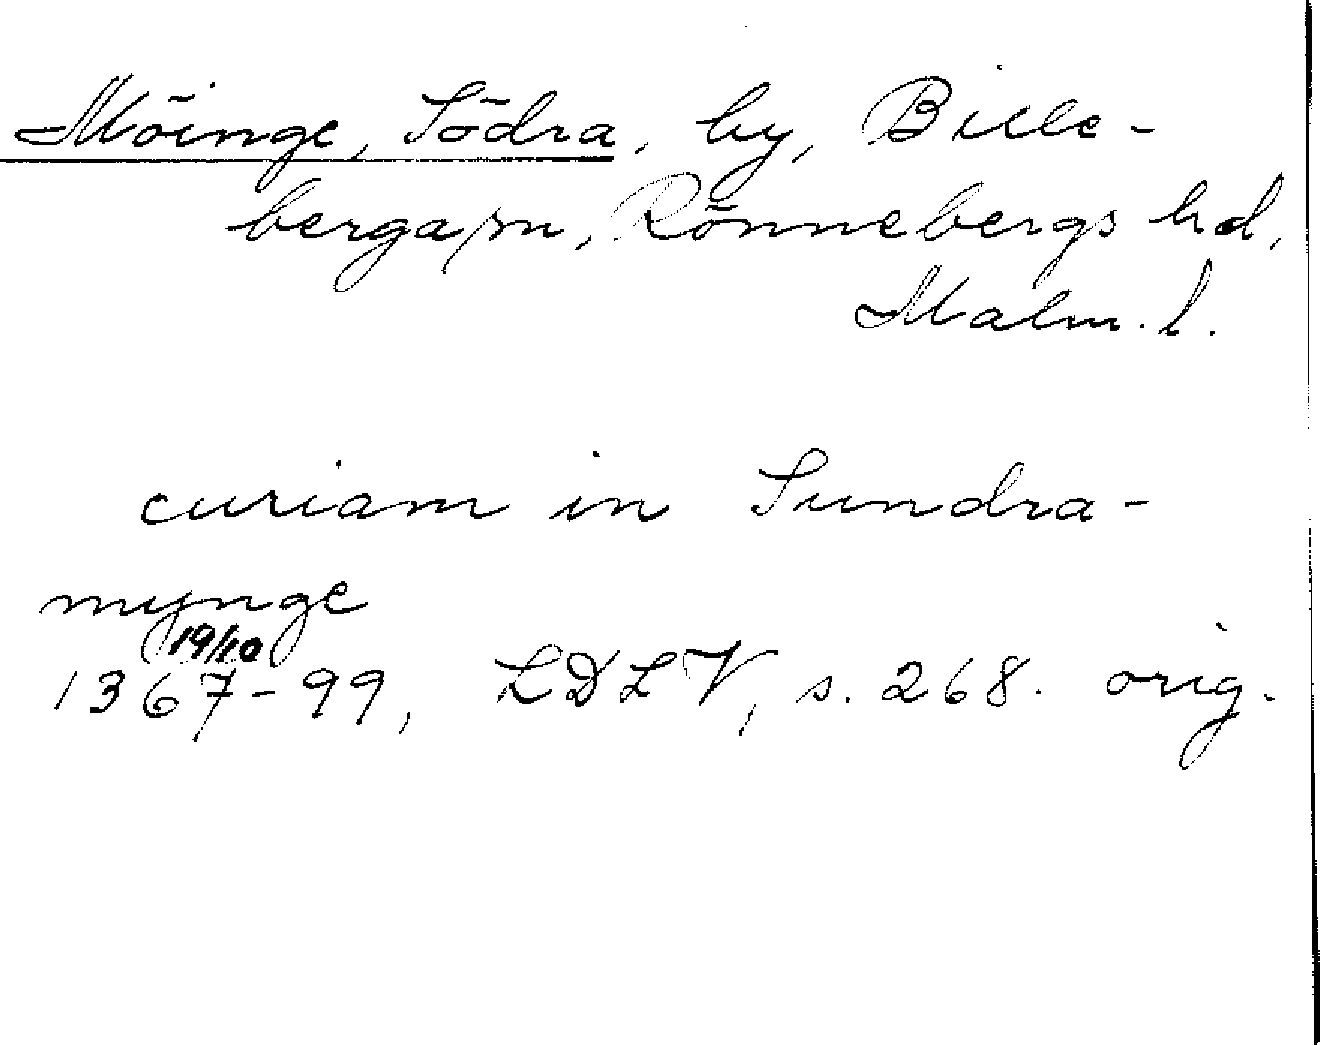 Möinge, Södra, by, Bille-
berga sn, Rönnebergs hd,
Malm. l.
curiam in Sundra-
mynge
19/10
1367-99, LDLV, s. 268. orig.